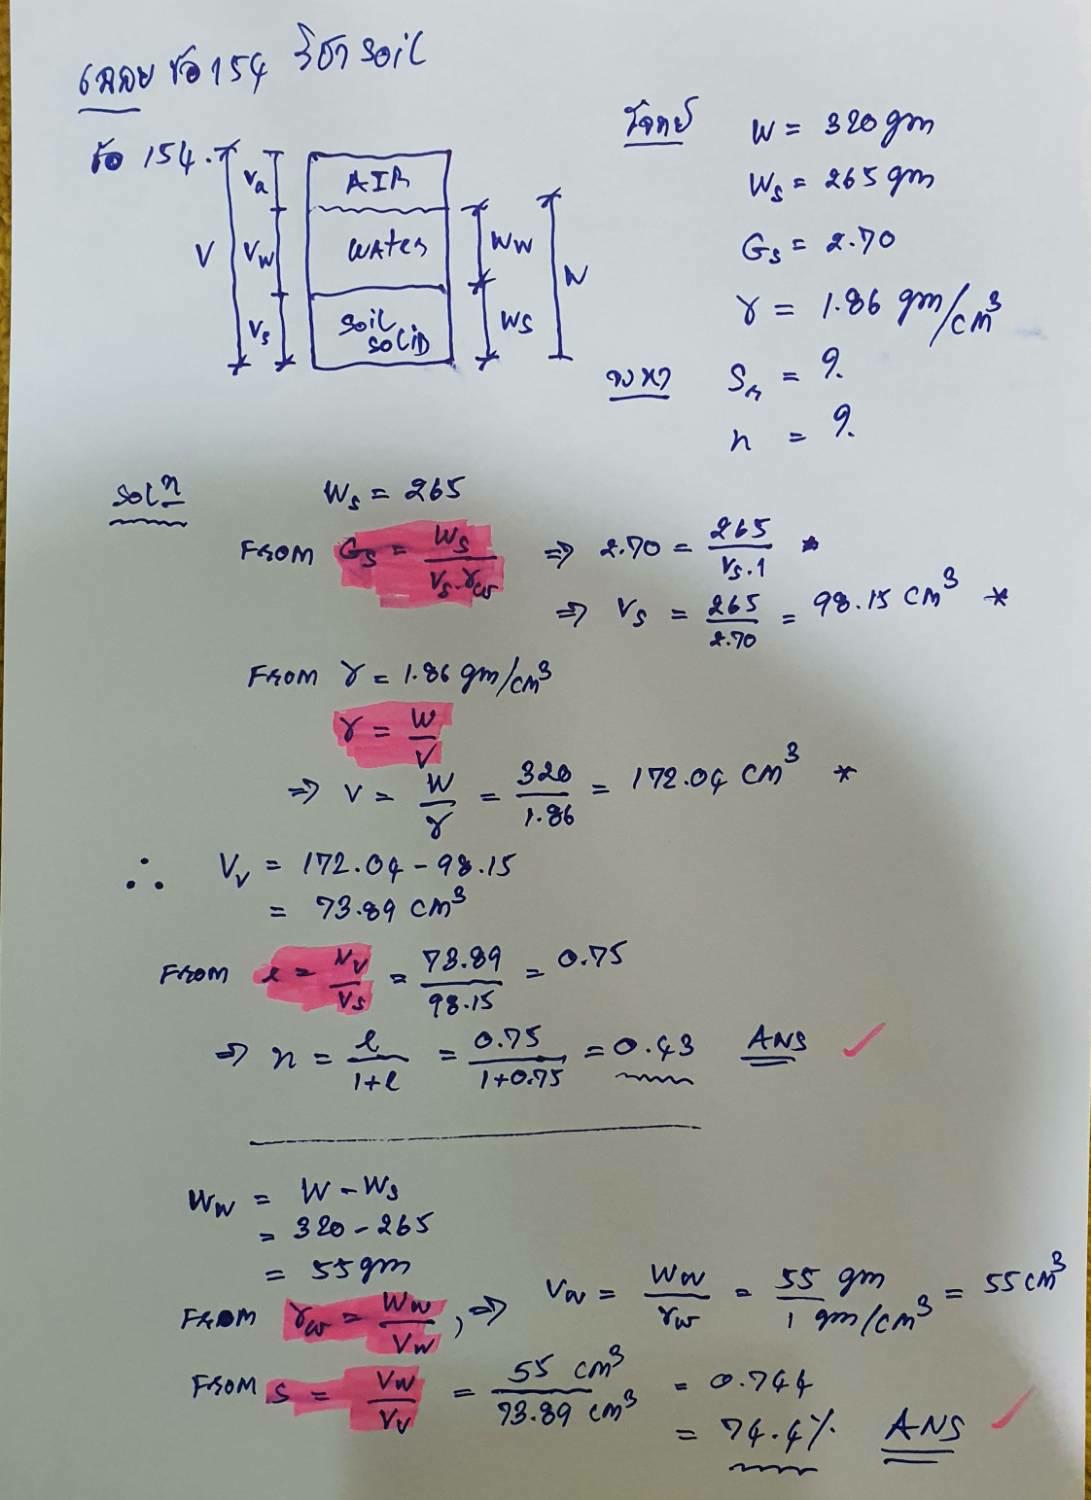 เฉลย ข้อ 154 วิชา Soil
ข้อ 154.
Va
AIR
V
Vw
WATER
Ww
W
Vs
Soil
SOLID
Ws
โจทย์ W = 320 gm
Ws = 265 gm
Gs = 2.70
γ = 1.86 gm/cm³
จงหา Sr = ?
n = ?
Solⁿ
Ws = 265
FROM Gs = Ws / Vs·γw ⇒ 2.70 = 265 / Vs·1 *
⇒ Vs = 265 / 2.70 = 98.15 cm³ *
FROM γ = 1.86 gm/cm³
γ = W / V
⇒ V = W / γ = 320 / 1.86 = 172.04 cm³ *
∴ Vv = 172.04 - 98.15
= 73.89 cm³
FROM e = Vv / Vs = 73.89 / 98.15 = 0.75
⇒ n = e / 1+e = 0.75 / 1+0.75 = 0.43 ANS ✓
Ww = W - Ws
= 320 - 265
= 55 gm
FROM γw = Ww / Vw, ⇒ Vw = Ww / γw = 55 gm / 1 gm/cm³ = 55 cm³
FROM S = Vw / Vv = 55 cm³ / 73.89 cm³ = 0.744
= 74.4% ANS ✓